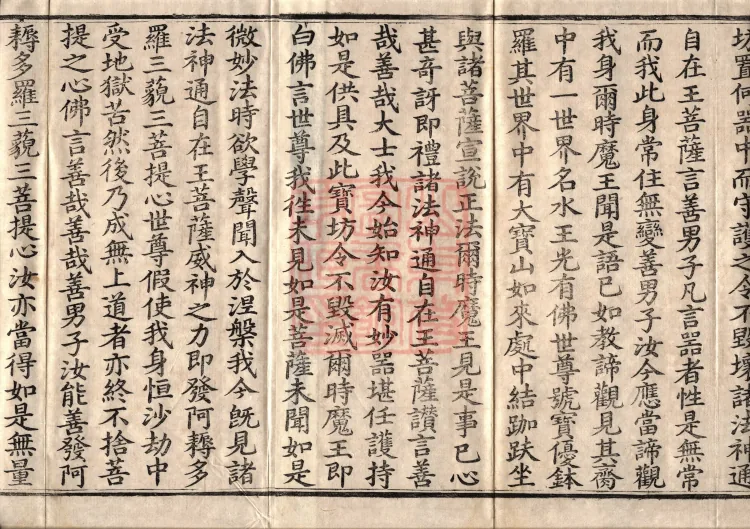 坊置何器中而守護之令不毀壞諸法神通
自在王菩薩言善男子凡言器者性是無常
而我此身常住無變善男子汝今應當諦觀
我身爾時魔王聞是語已如教諦觀見其齎
中有一世界名水王光有佛世尊號寶優鉢
羅其世界中有大寶山如來處中結跏趺坐
與諸菩薩宣說正法爾時魔王見是事已心
甚奇訝即禮諸法神通自在王菩薩讃言善
哉善哉大士我今始知汝有妙器堪任護持
如是供具及此寶坊令不毀滅爾時魔王即
白佛言世尊我從未見如是菩薩未聞如是
微妙法時欲學聲聞入於涅槃我今旣見諸
法神通自在王菩薩威神之力即發阿耨多
羅三藐三菩提心世尊假使我身恒沙劫中
受地獄苦然後乃成無上道者亦終不捨菩
提之心佛言善哉善哉善男子汝能善發阿
耨多羅三藐三菩提心汝亦當得如是無量